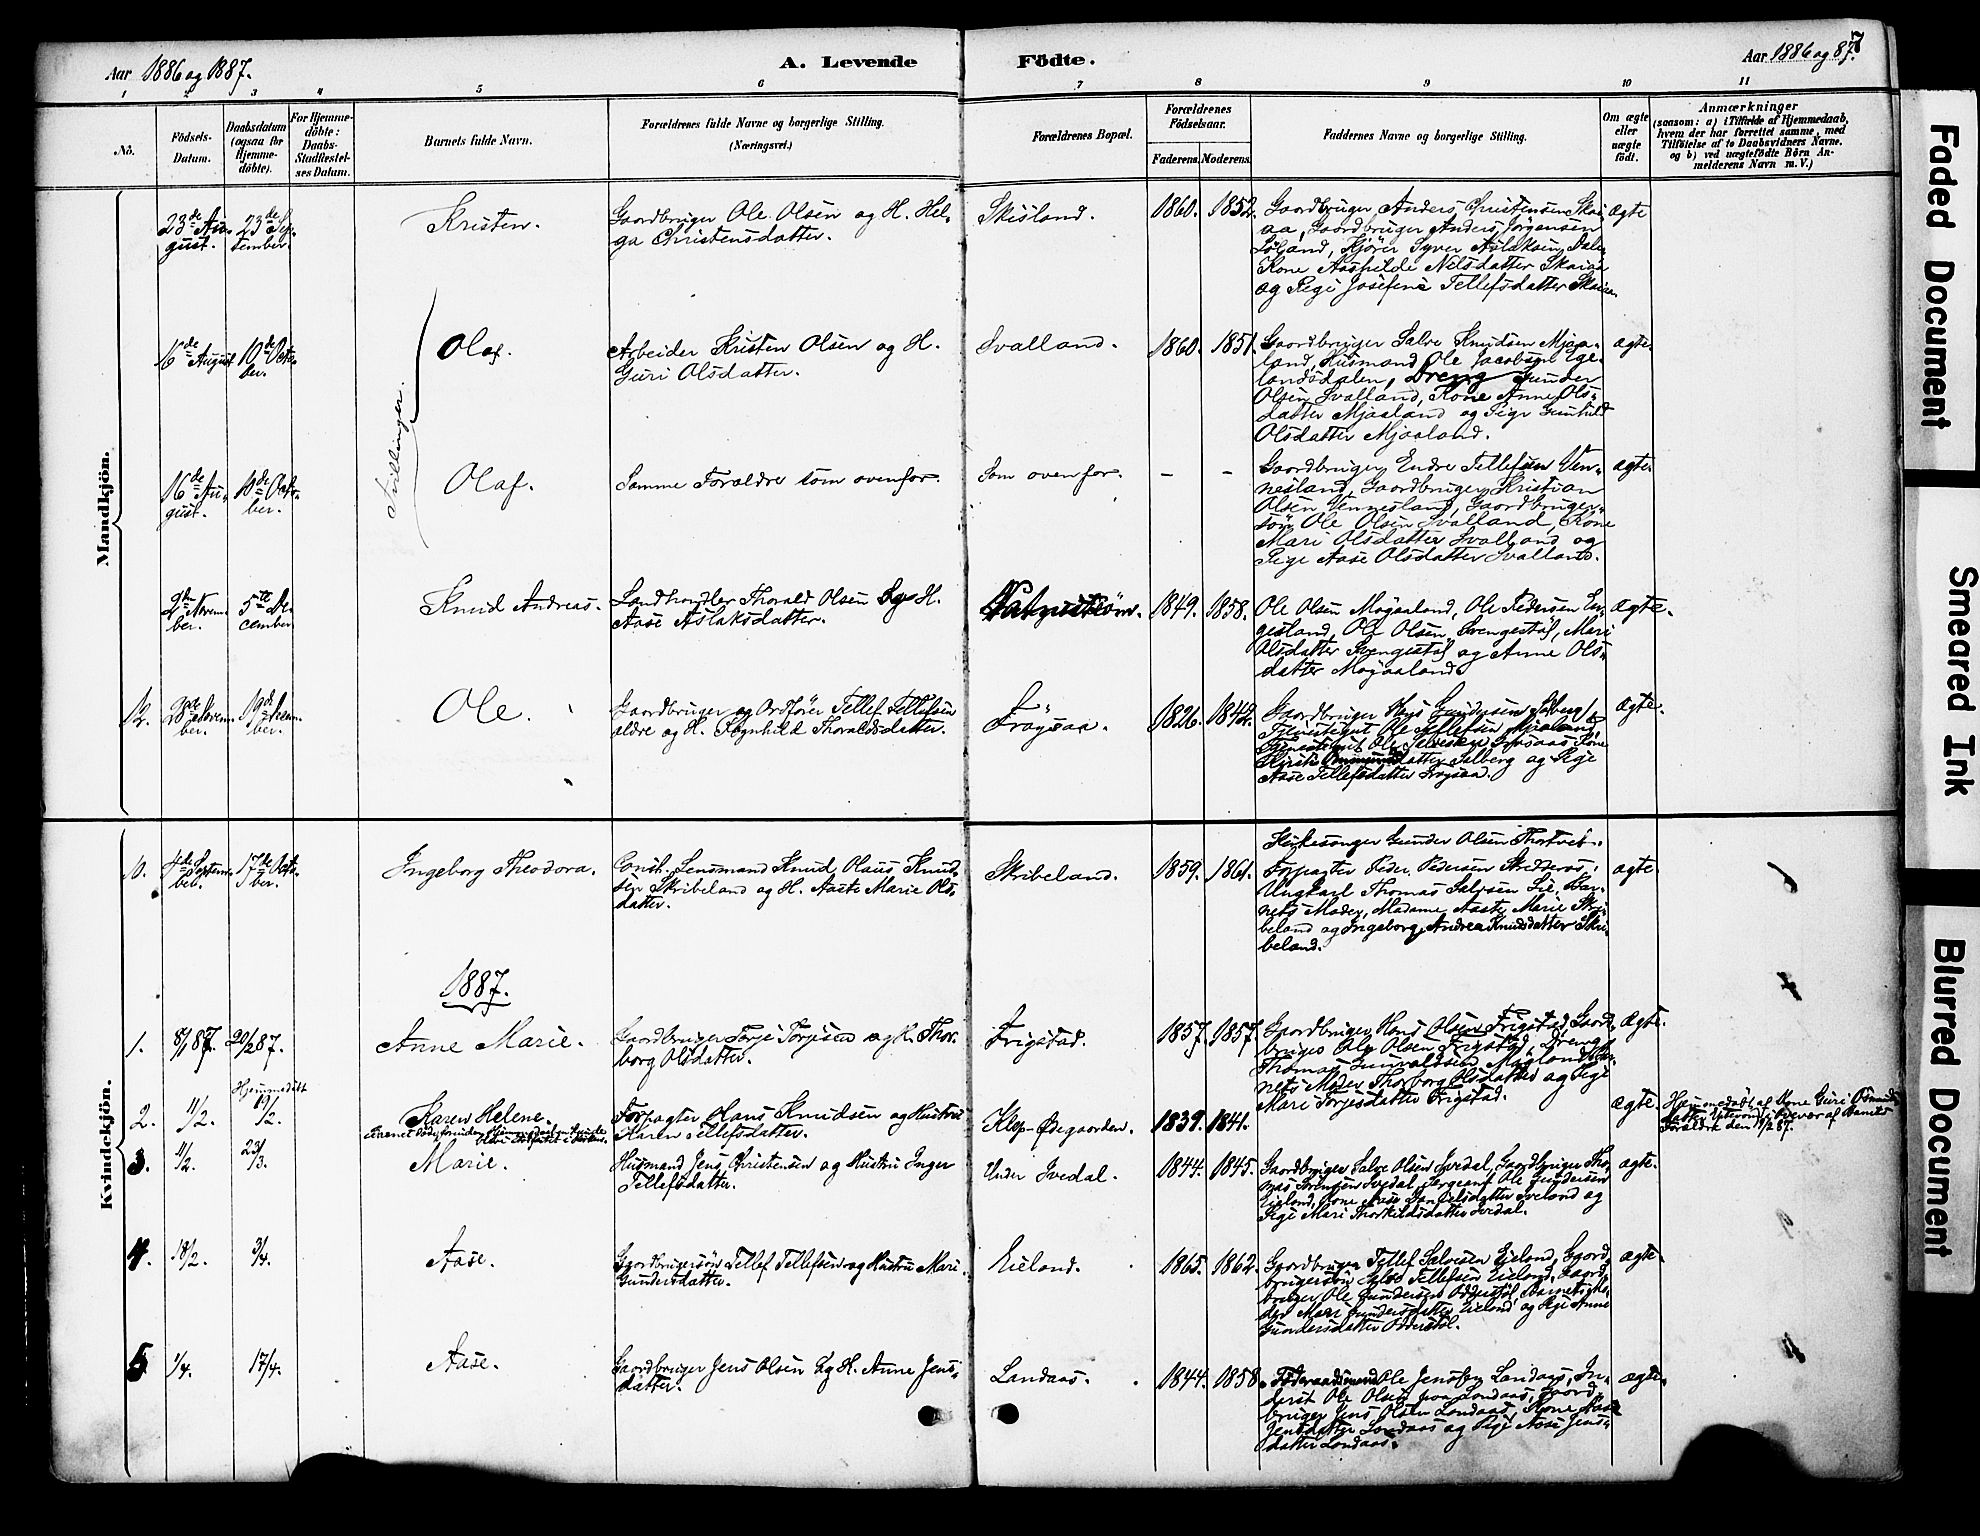 Aar 1886 og 1887.
A. Levende
Födte.
Aar 1886 og 87.
7
1 2 3 4 5 6 7 8 9 10 11
No.
Födsels-
Datum.
Daabsdatum
(ogsaa for
Hjemme-
döbte).
For Hjemme-
döbte:
Daabs-
Stadfæstel-
ses Datum.
Barnets fulde Navn.
Forældrenes fulde Navne og borgerlige Stilling.
(Næringsvei.)
Forældrenes Bopæl.
Forældrenes
Födselsaar.
Faderens. Moderens.
Faddernes Navne og borgerlige Stilling.
Om ægte
eller
uægte
födt.
Anmærkninger
(saasom: a) i Tilfælde af Hjemmedaab,
hvem der har forrettet samme, med
Tilföielse af to Daabsvidners Navne.
og b) ved uægtefödte Börn An-
melderens Navn m. V.)
Mandkjön.
23de Au-
gust.
23de Sep-
tember
Kristen.
Gaardbruger Ole Olsen og H. Hel-
ga Christensdatter.
Skisland.
1860. 1852.
Gaardbruger Anders Christensen Skai-
aa, Gaardbruger Anders Jörgensen
Löland, Kjörer Syver Aslaksen Dale,
Kone Aashilde Nilsdatter Skaiaa
og Pige Josefine Tellefsdatter Skaiaa
ægte
Tvillinger.
16de August
10de Octo-
ber.
Olaf.
Arbeider Kristen Olsen og H.
Guri Olsdatter.
Svalland.
1860. 1851.
Gaardbruger Salve Knudsen Mjaa-
land, Husmand Ole Jacobsen Ege-
landsdalen, Dreng Gunder
Olsen Svalland, Kone Anne Ols-
datter Mjaaland og Pige Gunhild
Olsdatter Mjaaland.
ægte.
16de Au-
gust.
10de Octo-
ber.
Olaf.
Samme Forældre som ovenfor.
Som ovenfor.
- -
Gaardbruger Endre Tellefsen Ven-
nesland, Gaardbruger Kristian
Olsen Vennesland, Gaardbruger-
sön Ole Olsen Svalland, Kone
Mari Olsdatter Svalland og
Pige Aase Olsdatter Svalland.
ægte.
Novem-
ber.
5te De-
cember
Knud Andreas.
Landhandler Thorald Olsen og H.
Aase Aslaksdatter.
1849. 1858.
Ole Olsen Mojaaland, Ole Pedersen En-
gesland, Ole Olsen Svengestöl, Mari
Olsdatter Svengestöl og Anne Ols-
datter Mojaaland.
ægte.
12.
28de Novem-
ber.
19de Decem-
ber.
Ole.
Gaardbruger og Ordförer Tellef Tellefsen
ældre og H. Ragnhild Thoraldsdatter.
Fröysaa.
1826. 1842.
Gaardbruger Gundersen Solberg,
Tjenestegut Ole Tellefsen Mjaaland,
Tjenestegut Ole Kone
datter Solberg og Pige
Aase Tellefsdatter Fröysaa.
ægte.
Kvindekjön.
10.
4de Septem-
ber.
17de Octo-
ber.
Ingeborg Theodora.
Const. Lensmand Knud Olaus Knud-
sen Skribeland og H. Aaste Marie Ols-
datter.
Skribeland.
1859. 1861.
Kirkesanger Gunder Olsen Thortveit.
Forpagter Peder Pedersen
Ungkarl Thomas Salvesen Lie, Bar-
nets Moder, Madame Aaste Marie Skri-
beland og Ingeborg Andrea Knudsdatter Skri-
beland.
ægte.
1887.
1.
8/1 87.
20/2 87.
Anne Marie.
Gaardbruger Torje Torjesen og H. Thor-
borg Olsdatter.
Frigstad.
1857. 1857.
Gaardbruger Hans Olsen Frigstad, Gaard-
bruger Ole Olsen Frigstad, Dreng
Thomas Gunvaldsen Bar-
nets Moder Thorborg Olsdatter og Pige
Mari Torjesdatter Frigstad.
ægte.
2.
11/2.
Hjemmedöbt
19/2.
Karen Helene.
Forpagter Hans Knudsen og Hustru
Karen Tellefsdatter.
Klep-Ödegaarden.
1839. 1841.
ægte.
Hjemmedöbt af Kone Guri
datter i Overvær af Barnets
Forældre den 19/2 87.
3.
11/2.
23/3.
Marie.
Husmand Jens Christensen og Hustru Inger
Tellefsdatter.
Under Ivedal.
1844. 1845.
Gaardbruger Salve Olsen Ivedal, Gaardbruger Tho-
mas Sörensen Ivedal, Sergeant Ole Gundersen
Eieland, Kone Aase Danielsdatter Iveland og
Pige Mari Thorkildsdatter Ivedal.
ægte.
4.
18/2.
3/4.
Aase.
Gaardbrugersön Tellef Tellefsen og Hustru Mari
Gundersdatter.
Eieland.
1865. 1862.
Gaardbruger Tellef Salvesen Eieland, Gaard-
brugersön Salve Tellefsen Eieland, Gaard-
bruger Ole Gundersen Odderstöl, Barnets Mo-
der Mari Gundersdatter Eieland og Pige Anne
Gundersdatter Odderstöl.
ægte.
5.
1/4.
17/4.
Aase.
Gaardbruger Jens Olsen og H. Anne Jens-
datter.
Landaas.
1844. 1858.
Föderaadsmand Ole Jensen Landaas, In-
derst Ole Olsen paa Landaas, Gaard-
bruger Jens Olsen Landaas, Kone Aase
Jensdatter Landaas og Pige Aase Jens-
datter Landaas.
ægte.
Faded Document
Smeared Ink
Blurred Document